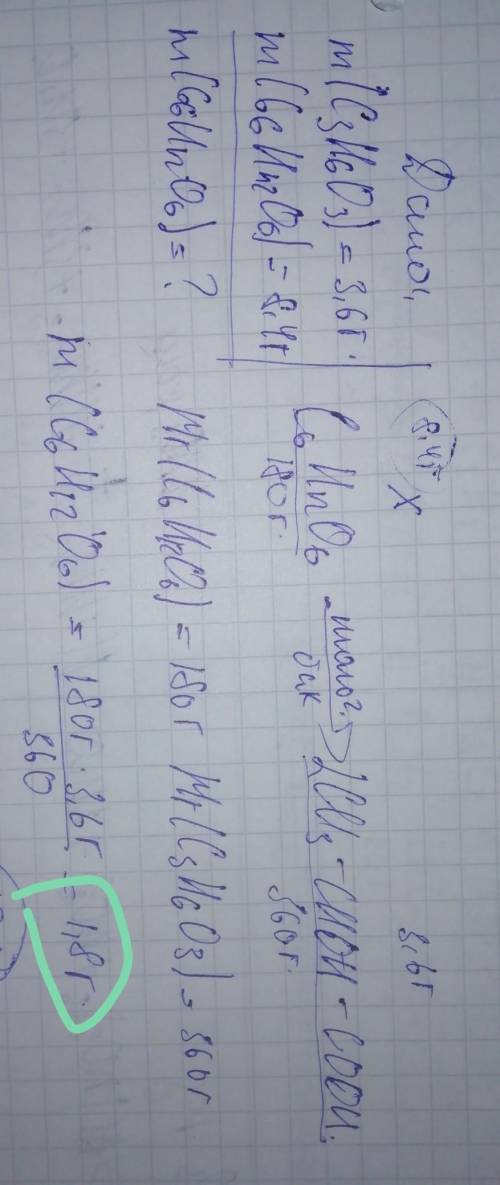 Дано:
m(C3H6O3) = 3,6г.
m(C6H12O6) = 8,4г
m(C6H12O6) = ?
8,4г X 3,6г
C6H12O6 → 2CH3-CHOH-COOH.
180г. 360г.
Mr(C6H12O6) = 180г Mr(C3H6O3) = 360г
m(C6H12O6) = 180г · 3,6г / 360 = 1,8г.